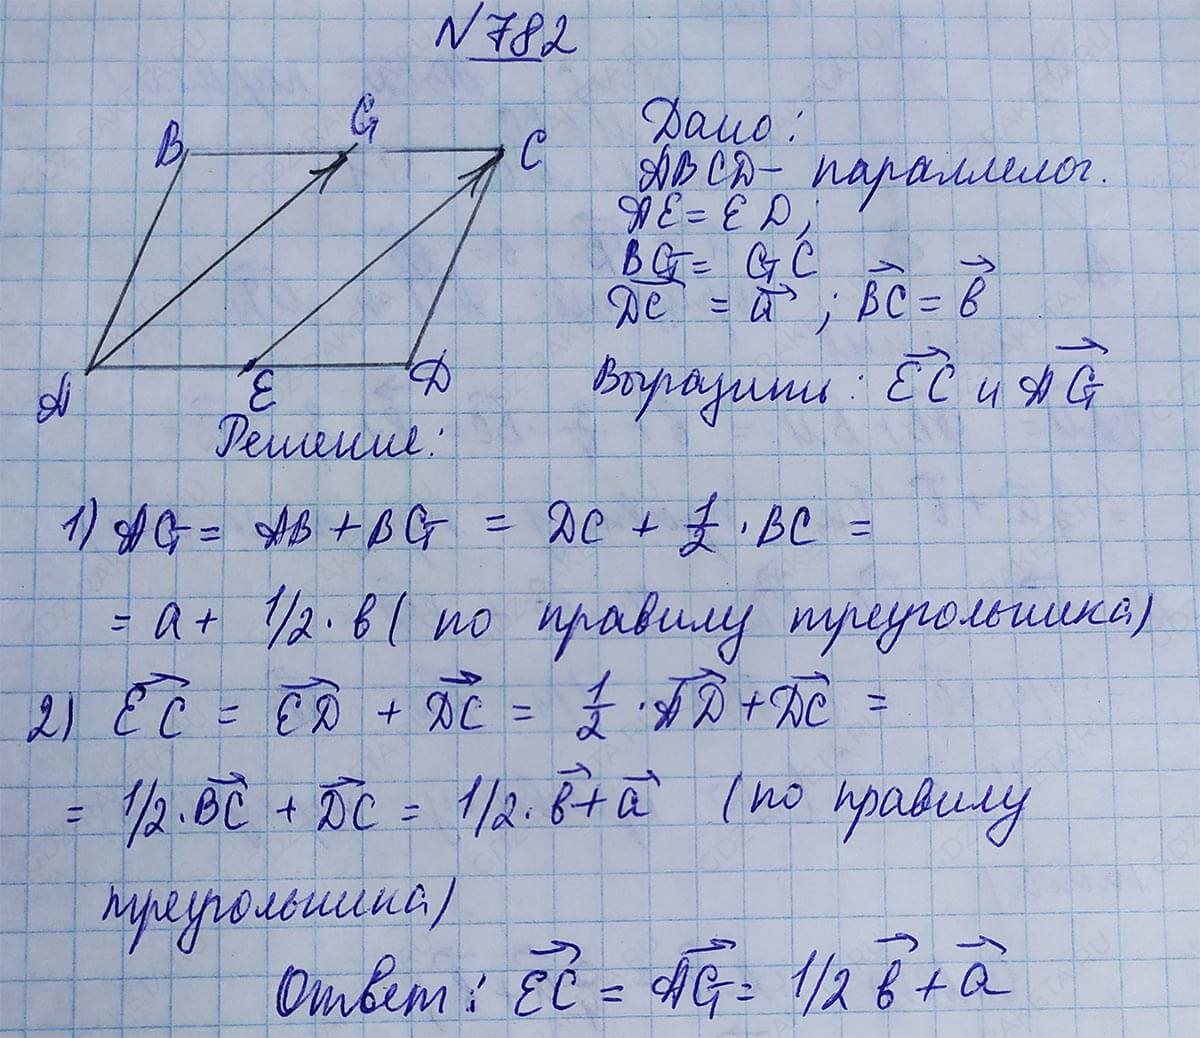 N782
B G C
A E D
Дано:
ABCD- параллелог.
AE = ED;
BG = GC
DC⃗ = a⃗ ; BC⃗ = b⃗
Выразить: EC⃗ и AG⃗
Решение:
1) AG = AB + BG = DC + 1/2 · BC =
= a + 1/2 · b (по правилу треугольника)
2) EC⃗ = ED⃗ + DC⃗ = 1/2 · AD⃗ + DC⃗ =
= 1/2 · BC⃗ + DC⃗ = 1/2 · b⃗ + a⃗ (по правилу
треугольника)
Ответ: EC⃗ = AG⃗ = 1/2 b⃗ + a⃗